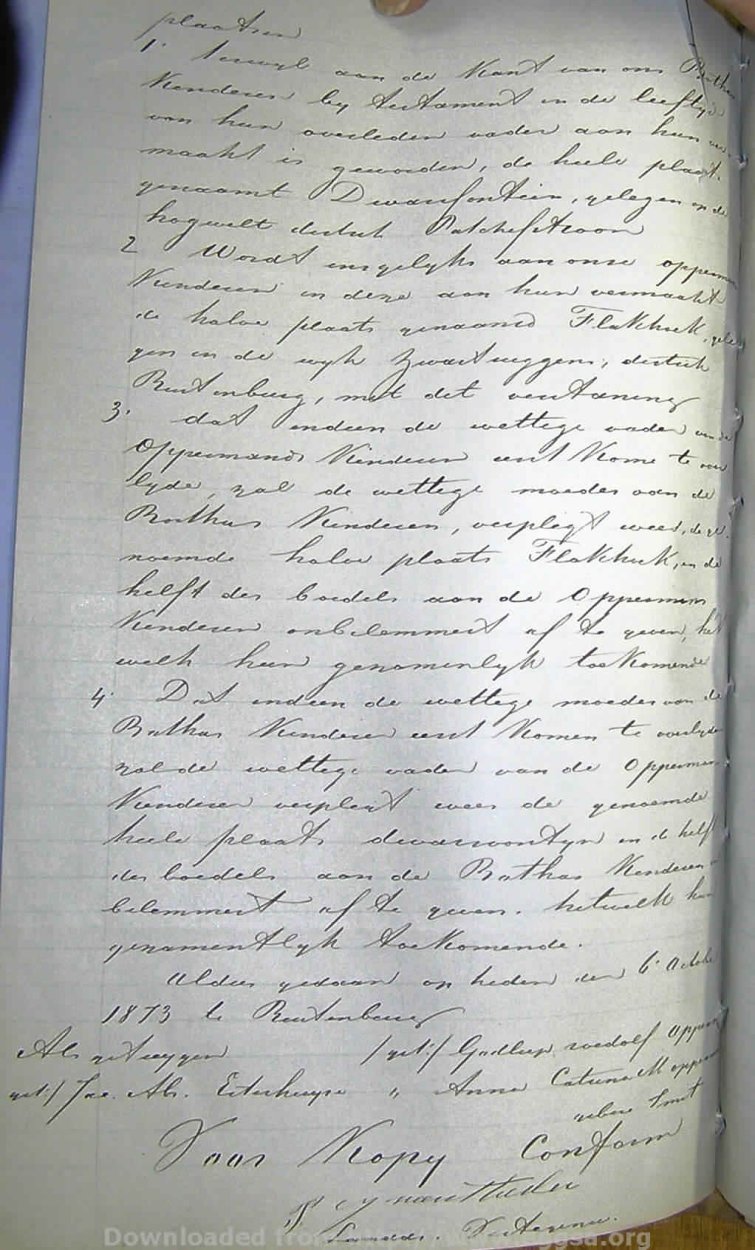 plaatsen
1. Terwyl aan de Kant van ons Bothas
Kinderen by testament in de leeftyd
van hun overleden vader aan hun ver
maakt is geworden, de heele plaats
genaamt Dwarsfontein, gelegen op de
hogevelt destrik Potchefstroom
2 Wordt insgelyks aan onse opperman
Kinderen in deze aan hun vermaakt
de halve plaats genaamd Flakhoek, gele
gen in de wyk Zwartruggens, destrik
Rustenburg, met det
3. dat indien de wettege vader van de
Oppermans Kinderen eerst Kome te over
lyde, zal de wettege moeder van de
Bothas Kinderen, verplegt wees, de ge
noemde halve plaats Flakhoek, en de
helft des boedels aan de Oppermans
Kinderen onbelemmert af te geven, het
welk hun gesamenlyk toeKomende
4. Dat indien de wettege moeder van de
Bothas Kinderen eerst Komen te overlyde
zal de wettege vader van de Opperman
Kinderen verplegt wees de genoemde
heele plaats en de helft
des boedels aan de Bothas Kinderen
belemmert af te geven. hetwelk hun
gezamentlyk toeKomende.
Aldus gedaan op heden den 6e October
1873 te Rustenburg
Als getuygen /get:/ Godliep Roedolf Opperman
get:/ Jac. Als. Esterhuyse " Anna Catrina M opperman
gebore Smit
Voor Kopy Conform
Downloaded from .org